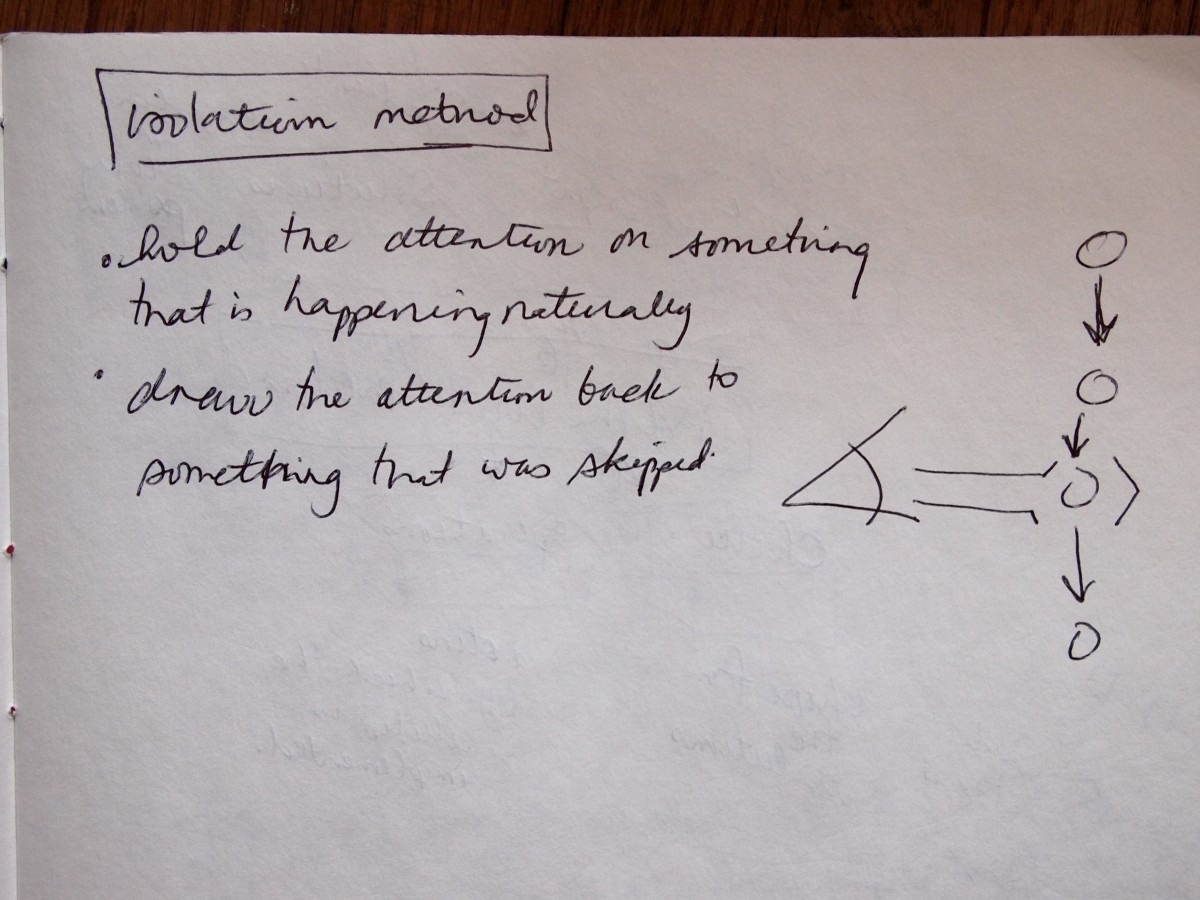 isolation method
• hold the attention on something
that is happening naturally
• draw the attention back to
something that was skipped.